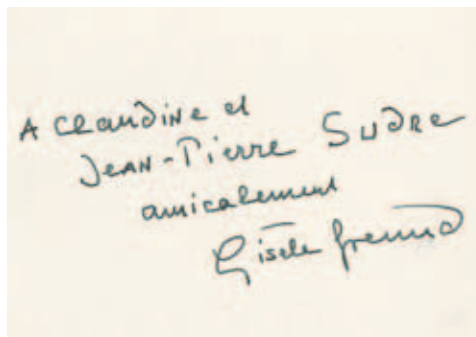 A Claudine et
Jean-Pierre Sudre
amicalement
Gisèle Freund